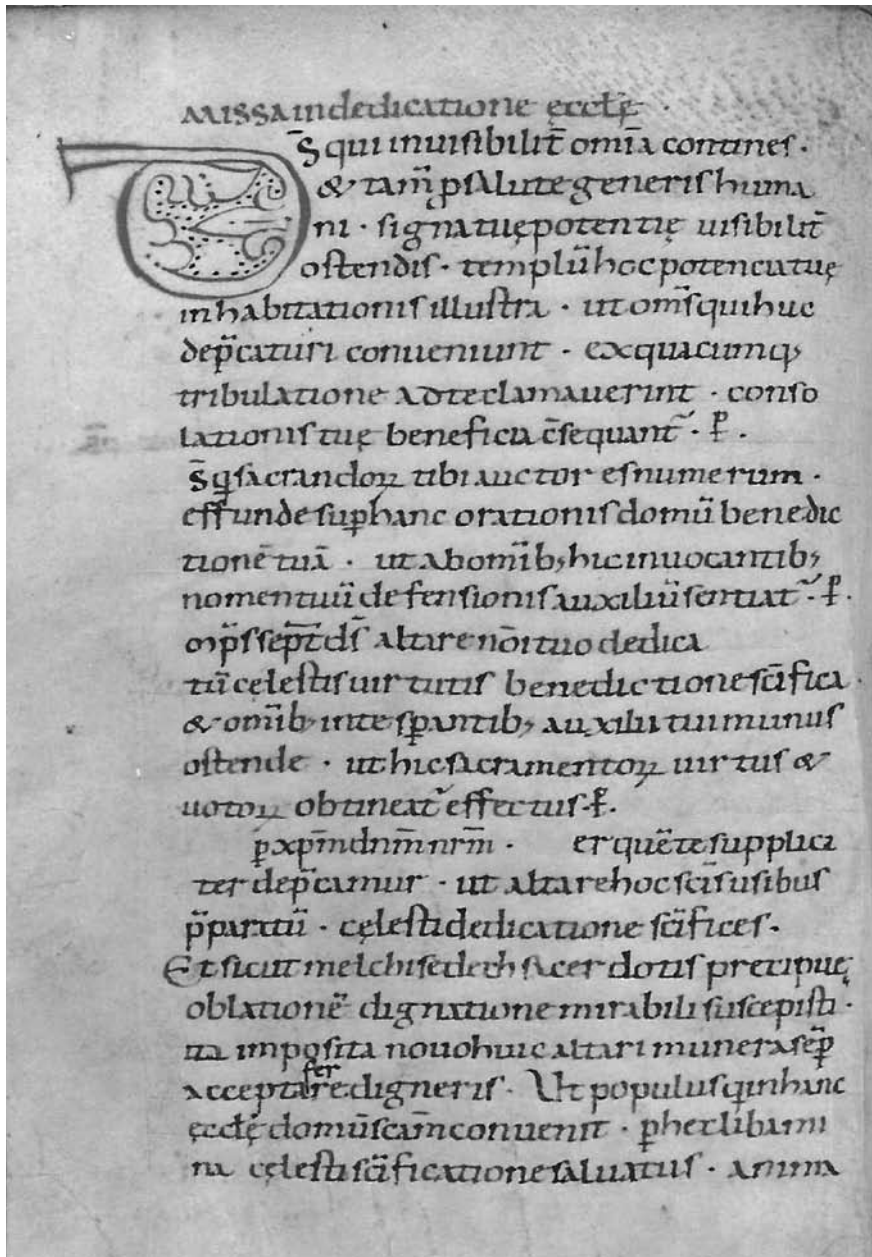 MISSA IN dedicatione ęccłę ·
D̄S qui inuisibilit̄ om̄ia contines ·
& tam̄ p salute generis huma
ni · signa tuę potentię uisibilit̄
ostendis · templū hoc potencia tuę
inhabitationis illustra · ut om̄s qui huc
dep̄caturi conueniunt · ex quacumq;
tribulatione ad te clamauerint · conso
lationis tuę beneficia c̄sequant̄ · P̱ ·
S̄ q̄ sacrandoꝝ tibi auctor es numerum ·
effunde sup hanc orationis domū benedic
tionē tuā · ut ab om̄ib; hic inuocantib;
nomen tuū defensionis auxiliū sentiat̄ · P̱ ·
om̄ps sep̄t d̄s altare nōi tuo dedica
tū cęlestis uirtutis benedictione sc̄ifica ·
& om̄ib; in te sp̱antib; auxilii tui munus
ostende · ut hic sacramentoꝝ uirtus &
uotoꝝ obtineat̄ effectus · P̱ ·
p̱ xp̄m dn̄m nr̄m · er quē te supplici
ter dep̄camur · ut altare hoc sc̄is usibus
p̄paratū · cęlesti dedicatione sc̄ifices ·
Et sicut melchisedech sacerdotis precipuę
oblationē dignatione mirabili suscepisti ·
ita imposita nouo huic altari munera sēp
accepta ferre digneris · Ut populus q̄ in hanc
ęccłę domū sc̄am conuenit · p̱ hec libami
na cęlesti sc̄ificatione saluatus · anima